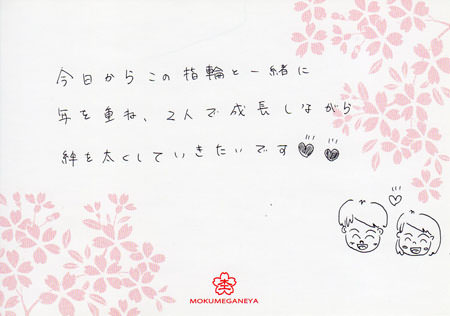 今日からこの指輪と一緒に
年を重ね、2人で成長しながら
絆を太くしていきたいです
MOKUMEGANEYA